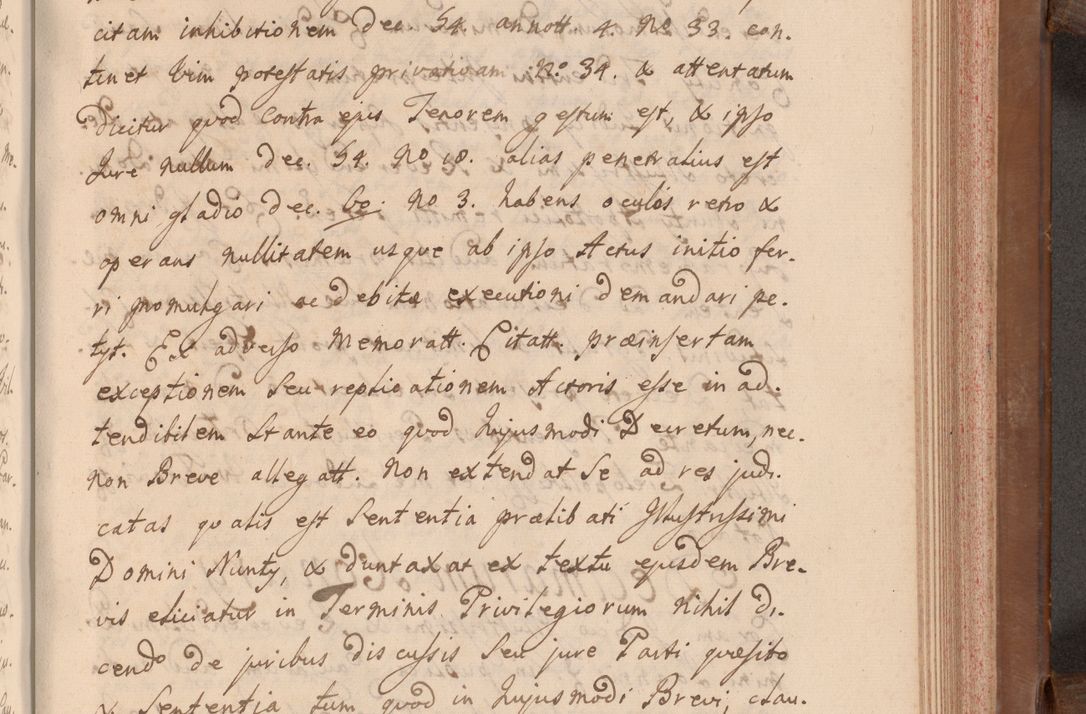 citam inhibitionem dec. 54. annott. 4. No 33. con-
tinet vim potestatis privativam No 34. & attentatum
dicitur quod contra ejus Tenorem gestum est, & ipso
Jure nullum dec. 54. No 18. alias penetratius est
omni gladio dec. 60. No 3. habens oculos retro &
operans nullitatem usque ab ipso Actus initio fer-
ri promulgari ac debitæ executioni demandari pe-
tyt. Ex adverso Memoratt. Citatt. præinsertam
exceptionem Seu replicationem Actoris esse in ad-
tendibilem Stante eo quod hujusmodi Decretum, nec-
non Breve allegatt. non extendat Se ad res judi-
catas qualis est Sententia prælibati Illustrissimi
Domini Nunty, & duntaxat ex textu ejusdem Bre-
vis eliciatur in Terminis Privilegiorum nihil di-
cendo de juribus discussis Seu jure Parti quæsito
& Sententia tum quod in hujusmodi Brevi, clau-